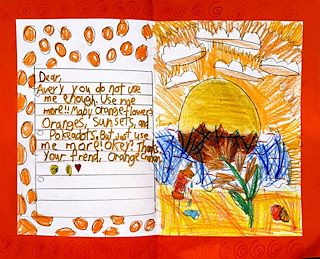 Dear,
Avery you do not use
me enough. Use me
more!! Maby orange flowers
Oranges, sunsets, and
Polkadots, But just use
me more! Okey? Thanks,
Your friend, Orange Crayon